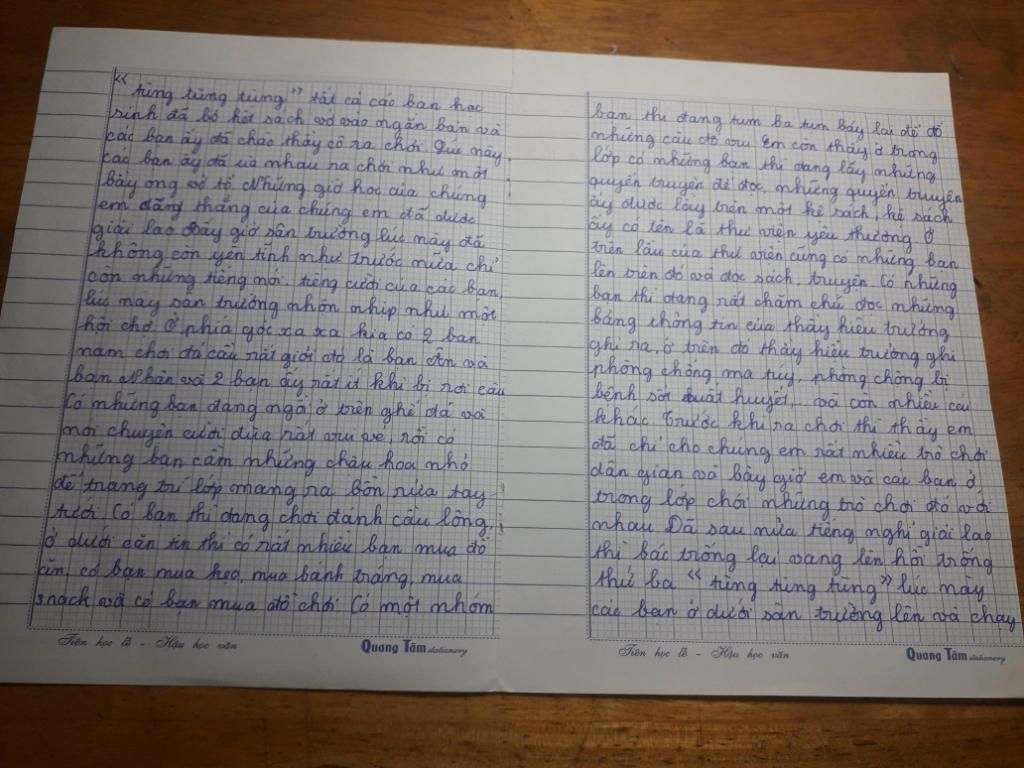 “ tùng tùng tùng ” tất cả các bạn học
sinh đã bỏ hết sách vở vào ngăn bàn và
các bạn ấy đã chào thầy cô ra chơi. Lúc này,
các bạn ấy đã ùa nhau ra chơi như một
bầy ong vỡ tổ. Những giờ học của chúng
em căng thẳng của chúng em đã được
giải lao. Bây giờ sân trường lúc này đã
không còn yên tĩnh như trước nữa chỉ
còn những tiếng nói, tiếng cười của các bạn,
lúc này sân trường nhộn nhịp như một
hội chợ. Ở phía góc xa xa kia có 2 bạn
nam chơi đá cầu rất giỏi đó là bạn Ân và
bạn Nhân và 2 bạn ấy rất ít khi bị rơi cầu
Có những bạn đang ngồi ở trên ghế đá và
nói chuyện cười đùa rất vui vẻ, rồi có
những bạn cầm những chậu hoa nhỏ
để trang trí lớp mang ra bồn rửa tay
tưới. Có bạn thì đang chơi đánh cầu lông,
ở dưới căn tin thì có rất nhiều bạn mua đồ
ăn, có bạn mua kẹo, mua bánh tráng, mua
snack và có bạn mua đồ chơi. Có một nhóm
Tiên học lễ - Hậu học văn
Quang Tâm stationery
bạn thì đang tụm ba tụm bảy lại để đố
những câu đố vui. Em còn thấy ở trong
lớp có những bạn thì đang lấy những
quyển truyện để đọc, những quyển truyện
ấy được lấy trên một kệ sách, kệ sách
ấy có tên là thư viện yêu thương. Ở
trên lầu của thư viện cũng có những bạn
lên trên đó và đọc sách, truyện. Có những
bạn thì đang rất chăm chú đọc những
bảng thông tin của thầy hiệu trưởng
ghi ra, ở trên đó thầy hiệu trưởng ghi
phòng chống ma túy, phòng chống bị
bệnh sốt xuất huyết,... và còn nhiều cái
khác. Trước khi ra chơi thì thầy em
đã chỉ cho chúng em rất nhiều trò chơi
dân gian và bây giờ em và các bạn ở
trong lớp chơi những trò chơi đó với
nhau. Đã sau nửa tiếng nghỉ giải lao
thì bác trống lại vang lên hồi trống
thứ ba “ tùng tùng tùng ” lúc này
các bạn ở dưới sân trường lên và chạy
Tiên học lễ - Hậu học văn
Quang Tâm stationery